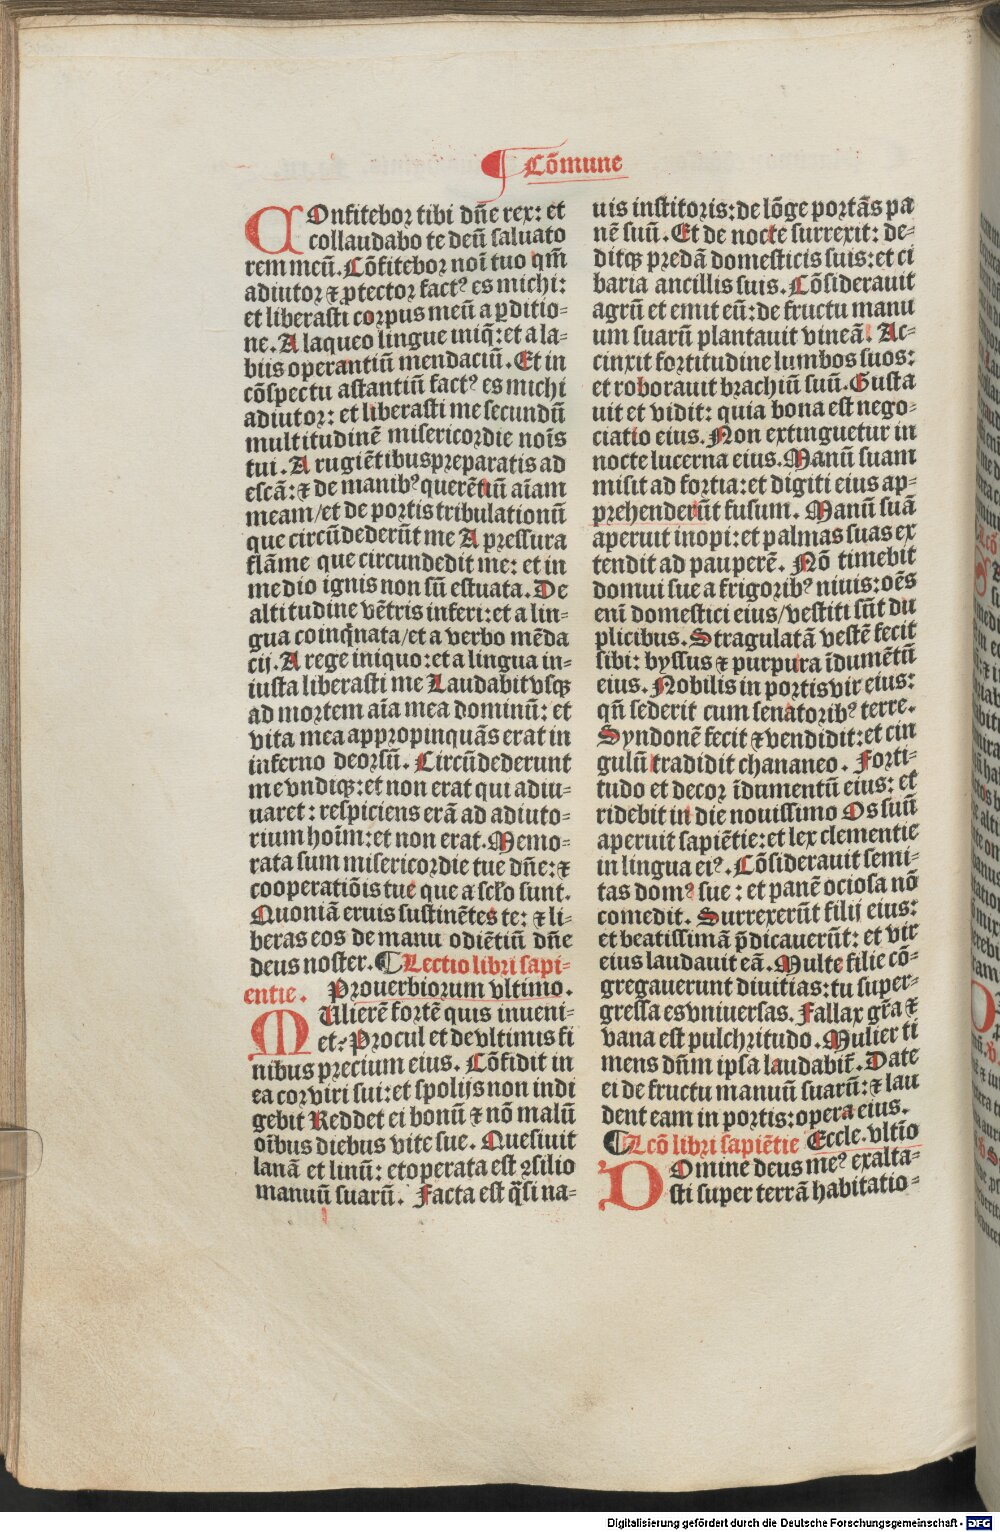 ¶ Cõmune
COnfitebor tibi dñe rex: et
collaudabo te deũ saluato
rem meũ. Cõfitebor noĩ tuo qm̃
adiutor ⁊ ꝓtector factꝰ es michi:
et liberasti corpus meũ a ꝑditio-
ne. A laqueo lingue iniq̃: et a la-
biis operantiũ mendaciũ. Et in
cõspectu astantiũ factꝰ es michi
adiutor: et liberasti me secundũ
multitudinẽ misericordie noĩs
tui. A rugiẽtibus preparatis ad
escã: ⁊ de manibꝰ querẽtiũ aĩam
meam/et de portis tribulationũ
que circũdederũt me A pressura
flãme que circundedit me: et in
medio ignis non sũ estuata. De
altitudine vẽtris inferi: et a lin-
gua coinq̃nata/et a verbo mẽda
cij. A rege iniquo: et a lingua in-
iusta liberasti me Laudabit vsqꝫ
ad mortem aĩa mea dominũ: et
vita mea appropinquãs erat in
inferno deorsũ. Circũdederunt
me vndiqꝫ: et non erat qui adiu-
uaret: respiciens erã ad adiuto-
rium hoĩm: et non erat. Memo-
rata sum misericordie tue dñe: ⁊
cooperatiõis tue que a sclo sunt.
Quoniã eruis sustinẽtes te: ⁊ li-
beras eos de manu odiẽtiũ dñe
deus noster. ¶ Lectio libri sapi-
entie. Prouerbiorum vltimo.
MUlierẽ fortẽ quis inueni-
et? Procul et de vltimis fi
nibus precium eius. Cõfidit in
ea cor viri sui: et spolijs non indi
gebit Reddet ei bonũ ⁊ nõ malũ
oĩbus diebus vite sue. Quesiuit
lanã et linũ: et operata est ꝯsilio
manuũ suarũ. Facta est q̃si na-
uis institoris: de lõge portãs pa
nẽ suũ. Et de nocte surrexit: de-
ditqꝫ predã domesticis suis: et ci
baria ancillis suis. Cõsiderauit
agrũ et emit eũ: de fructu manu
um suarũ plantauit vineã. Ac-
cinxit fortitudine lumbos suos:
et roborauit brachiũ suũ. Gusta
uit et vidit: quia bona est nego-
ciatio eius. Non extinguetur in
nocte lucerna eius. Manũ suam
misit ad fortia: et digiti eius ap-
prehenderũt fusum. Manũ suã
aperuit inopi: et palmas suas ex
tendit ad pauperẽ. Nõ timebit
domui sue a frigoribꝰ niuis: oẽs
enĩ domestici eius/vestiti sũt du
plicibus. Stragulatã vestẽ fecit
sibi: byssus ⁊ purpura ĩdumẽtũ
eius. Nobilis in portis vir eius:
qñ sederit cum senatoribꝰ terre.
Syndonẽ fecit ⁊ vendidit: et cin
gulũ tradidit chananeo. Forti-
tudo et decor ĩdumentũ eius: et
ridebit in die nouissimo Os suũ
aperuit sapiẽtie: et lex clementie
in lingua eiꝰ. Cõsiderauit semi-
tas domꝰ sue: et panẽ ociosa nõ
comedit. Surrexerũt filij eius:
et beatissimã p̃dicauerũt: et vir
eius laudauit eã. Multe filie cõ-
gregauerunt diuitias: tu super-
gressa es vniuersas. Fallax gr̃a ⁊
vana est pulchritudo. Mulier ti
mens dñm ipsa laudabit̃. Date
ei de fructu manuũ suarũ: ⁊ lau
dent eam in portis: opera eius.
¶ Lcõ libri sapiẽtie Eccle. vltĩo
DOmine deus meꝰ exalta-
sti super terrã habitatio-